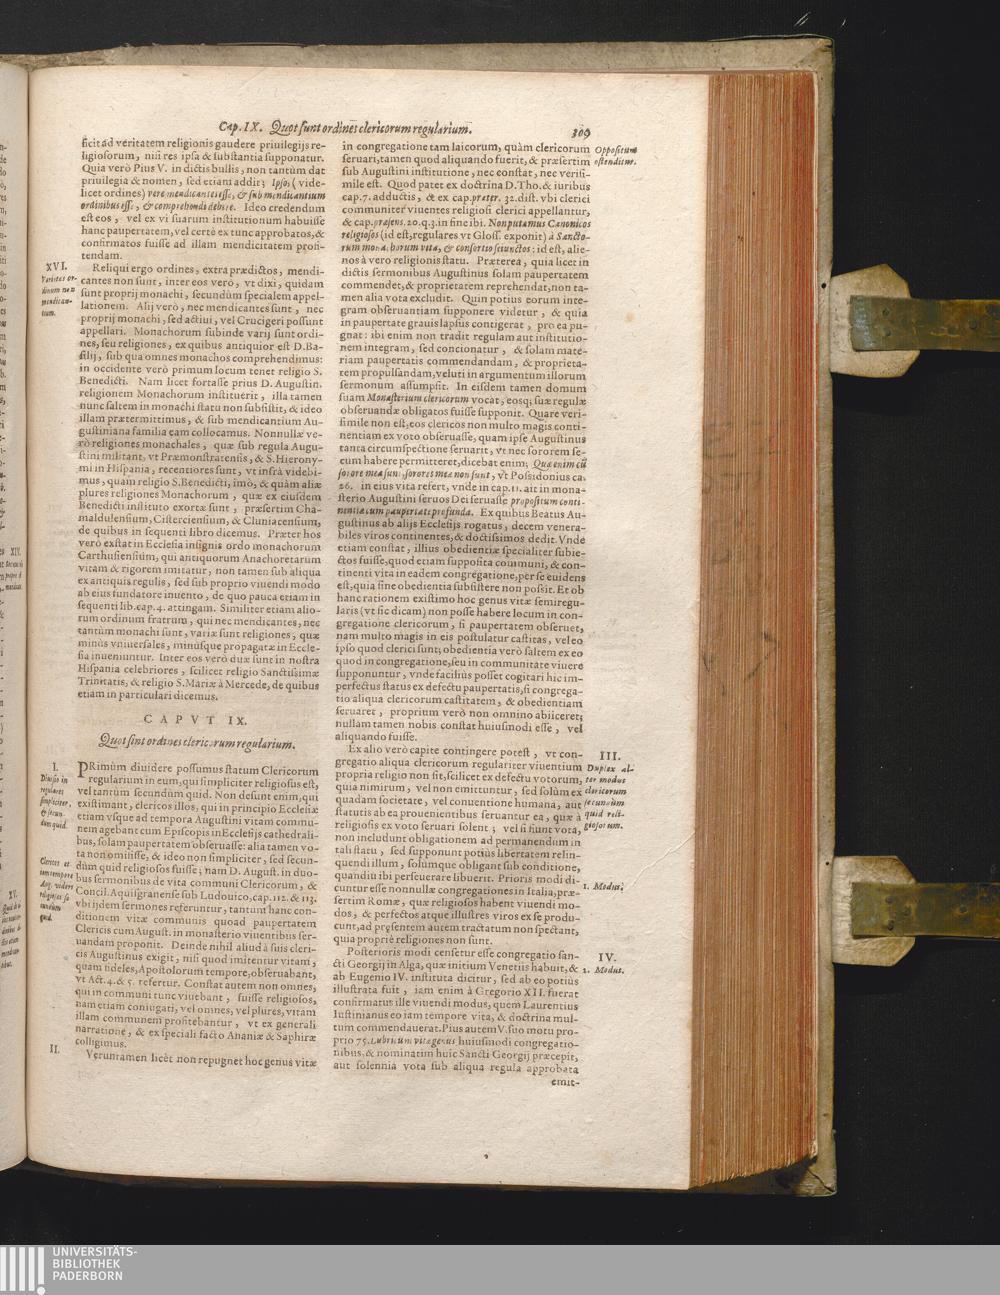 Cap. IX. Quot sunt ordines clericorum regularium. 309
ficit ad veritatem religionis gaudere priuilegijs re-
ligiosorum, nisi res ipsa & substantia supponatur.
Quia verò Pius V. in dictis bullis, non tantùm dat
priuilegia & nomen, sed etiam addit; Ipsos (vide-
licet ordines) vere mendicantes esse, & sub mendicantium
ordinibus esse, & comprehendi debere. Ideo credendum
est eos, vel ex vi suarum institutionum habuisse
hanc paupertatem, vel certè ex tunc approbatos, &
confirmatos fuisse ad illam mendicitatem profi-
tendam.
XVI.
Varietas or-
dinum non
mendican-
tium.
Reliqui ergo ordines, extra prædictos, mendi-
cantes non sunt, inter eos verò, vt dixi, quidam
sunt proprij monachi, secundùm specialem appel-
lationem. Alij verò, nec mendicantes sunt, nec
proprij monachi, sed actiui, vel Crucigeri possunt
appellari. Monachorum subinde varij sunt ordi-
nes, seu religiones, ex quibus antiquior est D. Ba-
silij, sub qua omnes monachos comprehendimus:
in occidente verò primum locum tenet religio S.
Benedicti. Nam licet fortasse prius D. Augustin.
religionem Monachorum instituerit, illa tamen
nunc saltem in monachi statu non subsistit, & ideo
illam prætermittimus, & sub mendicantium Au-
gustiniana familia eam collocamus. Nonnullæ ve-
rò religiones monachales, quæ sub regula Augu-
stini militant, vt Præmonstratensis, & S. Hierony-
mi in Hispania, recentiores sunt, vt infrà videbi-
mus, quàm religio S. Benedicti, imò, & quàm aliæ
plures religiones Monachorum, quæ ex eiusdem
Benedicti instituto exortæ sunt, præsertim Cha-
maldulensium, Cisterciensium, & Cluniacensium,
de quibus in sequenti libro dicemus. Præter hos
verò exstat in Ecclesia insignis ordo monachorum
Carthusiensium, qui antiquorum Anachoretarum
vitam & rigorem imitatur, non tamen sub aliqua
ex antiquis regulis, sed sub proprio viuendi modo
ab eius fundatore inuento, de quo pauca etiam in
sequenti lib. cap. 4. attingam. Similiter etiam alio-
rum ordinum fratrum, qui nec mendicantes, nec
tantùm monachi sunt, variæ sunt religiones, quæ
minùs vniuersales, minúsque propagatæ in Eccle-
sia inueniuntur. Inter eos verò duæ sunt in nostra
Hispania celebriores, scilicet religio Sanctissimæ
Trinitatis, & religio S. Mariæ à Mercede, de quibus
etiam in particulari dicemus.
CAPVT IX.
Quot sint ordines clericorum regularium.
I.
Diuisio in
regulares
simpliciter,
& secun-
dum quid.
PRimùm diuidere possumus statum Clericorum
regularium in eum, qui simpliciter religiosus est,
vel tantùm secundùm quid. Non desunt enim, qui
existimant, clericos illos, qui in principio Ecclesiæ
etiam vsque ad tempora Augustini vitam commu-
nem agebant cum Episcopis in Ecclesijs cathedrali-
bus, solam paupertatem obseruasse: alia tamen vo-
ta non omisisse, & ideo non simpliciter, sed secun-
dùm quid religiosos fuisse; nam D. August. in duo-
bus sermonibus de vita communi Clericorum, &
Concil. Aquisgranense sub Ludouico, cap. 112. & 113.
vbi ijdem sermones referuntur, tantùm hanc con-
ditionem vitæ communis quoad paupertatem
Clericis cum August. in monasterio viuentibus ser-
uandam proponit. Deinde nihil aliud à suis cleri-
cis Augustinus exigit, nisi quod imitentur vitam,
quam fideles, Apostolorum tempore, obseruabant,
vt Act. 4. & 5. refertur. Constat autem non omnes,
qui in communi tunc viuebant, fuisse religiosos,
nam etiam coniugati, vel omnes, vel plures, vitam
illam communem profitebantur, vt ex generali
narratione, & ex speciali facto Ananiæ & Saphiræ
colligimus.
Clericos et
iam tempore
Aug. videri
religiosos se
cundum
quid.
II.
Veruntamen licèt non repugnet hoc genus vitæ
in congregatione tam laicorum, quàm clericorum
seruari, tamen quod aliquando fuerit, & præsertim
sub Augustini institutione, nec constat, nec verisi-
mile est. Quod patet ex doctrina D. Tho. & iuribus
cap. 7. adductis, & ex cap. præter. 32. dist. vbi clerici
communiter viuentes religiosi clerici appellantur,
& cap. præsens. 20. q. 3. in fine ibi. Non putamus Canonicos
religiosos (id est, regulares vt Gloss. exponit) à Sancto-
rum monachorum vita, & consortio seiunctos: id est, alie-
nos à vero religionis statu. Præterea, quia licet in
dictis sermonibus Augustinus solam paupertatem
commendet, & proprietatem reprehendat, non ta-
men alia vota excludit. Quin potius eorum inte-
gram obseruantiam supponere videtur, & quia
in paupertate grauis lapsus contigerat, pro ea pu-
gnat: ibi enim non tradit regulam aut institutio-
nem integram, sed concionatur, & solam mate-
riam paupertatis commendandam, & proprieta-
tem propulsandam, veluti in argumentum illorum
sermonum assumpsit. In eisdem tamen domum
suam Monasterium clericorum vocat, eosq; suæ regulæ
obseruandæ obligatos fuisse supponit. Quare veri-
simile non est, eos clericos non multo magis conti-
nentiam ex voto obseruasse, quam ipse Augustinus
tanta circumspectione seruarit, vt nec sororem se-
cum habere permitteret, dicebat enim; Quæ enim cũ
sorore mea sunt, sorores meæ non sunt, vt Possidonius ca.
26. in eius vita refert, vnde in cap. 11. ait in mona-
sterio Augustini seruos Dei seruasse propositum conti-
nentiæ cum paupertate profunda. Ex quibus Beatus Au-
gustinus ab alijs Ecclesijs rogatus, decem venera-
biles viros continentes, & doctissimos dedit. Vnde
etiam constat, illius obedientiæ specialiter subie-
ctos fuisse, quod etiam supposita communi, & con-
tinenti vita in eadem congregatione, per se euidens
est, quia sine obedientia subsistere non possit. Et ob
hanc rationem existimo hoc genus vitæ semiregu-
laris (vt sic dicam) non posse habere locum in con-
gregatione clericorum, si paupertatem obseruet,
nam multo magis in eis postulatur castitas, vel eo
ipso quod clerici sunt; obedientia verò saltem ex eo
quod in congregatione, seu in communitate viuere
supponuntur, vnde facilius posset cogitari hic im-
perfectus status ex defectu paupertatis, si congrega-
tio aliqua clericorum castitatem, & obedientiam
seruaret, proprium verò non omnino abijceret;
nullam tamen nobis constat huiusmodi esse, vel
aliquando fuisse.
Oppositum
ostenditur.
Ex alio verò capite contingere potest, vt con-
gregatio aliqua clericorum regulariter viuentium
propria religio non sit, scilicet ex defectu votorum,
quia nimirum, vel non emittuntur, sed solùm ex
quadam societate, vel conuentione humana, aut
statutis ab ea prouenientibus seruantur ea, quæ à
religiosis ex voto seruari solent; vel si fiunt vota,
non includunt obligationem ad permanendum in
tali statu, sed supponunt potiùs libertatem relin-
quendi illum, solúmque obligant sub conditione,
quandiu ibi perseuerare libuerit. Prioris modi di-
cuntur esse nonnullæ congregationes in Italia, præ-
sertim Romæ, quæ religiosos habent viuendi mo-
dos, & perfectos atque illustres viros ex se produ-
cunt, ad præsentem autem tractatum non spectant,
quia propriè religiones non sunt.
III.
Duplex al-
ter modus
clericorum
secundùm
quid reli-
giosorum.
1. Modus.
Posterioris modi censetur esse congregatio san-
cti Georgij in Alga, quæ initium Venetiis habuit, &
ab Eugenio IV. instituta dicitur, sed ab eo potiùs
illustrata fuit, iam enim à Gregorio XII. fuerat
confirmatus ille viuendi modus, quem Laurentius
Iustinianus eo iam tempore vita, & doctrina mul-
tum commendauerat. Pius autem V. suo motu pro-
prio 75. Lubricum vitæ genus huiusmodi congregatio-
nibus, & nominatim huic Sancti Georgij præcepit,
aut solennia vota sub aliqua regula approbata
IV.
2. Modus.
emit-
UNIVERSITÄTS-
BIBLIOTHEK
PADERBORN